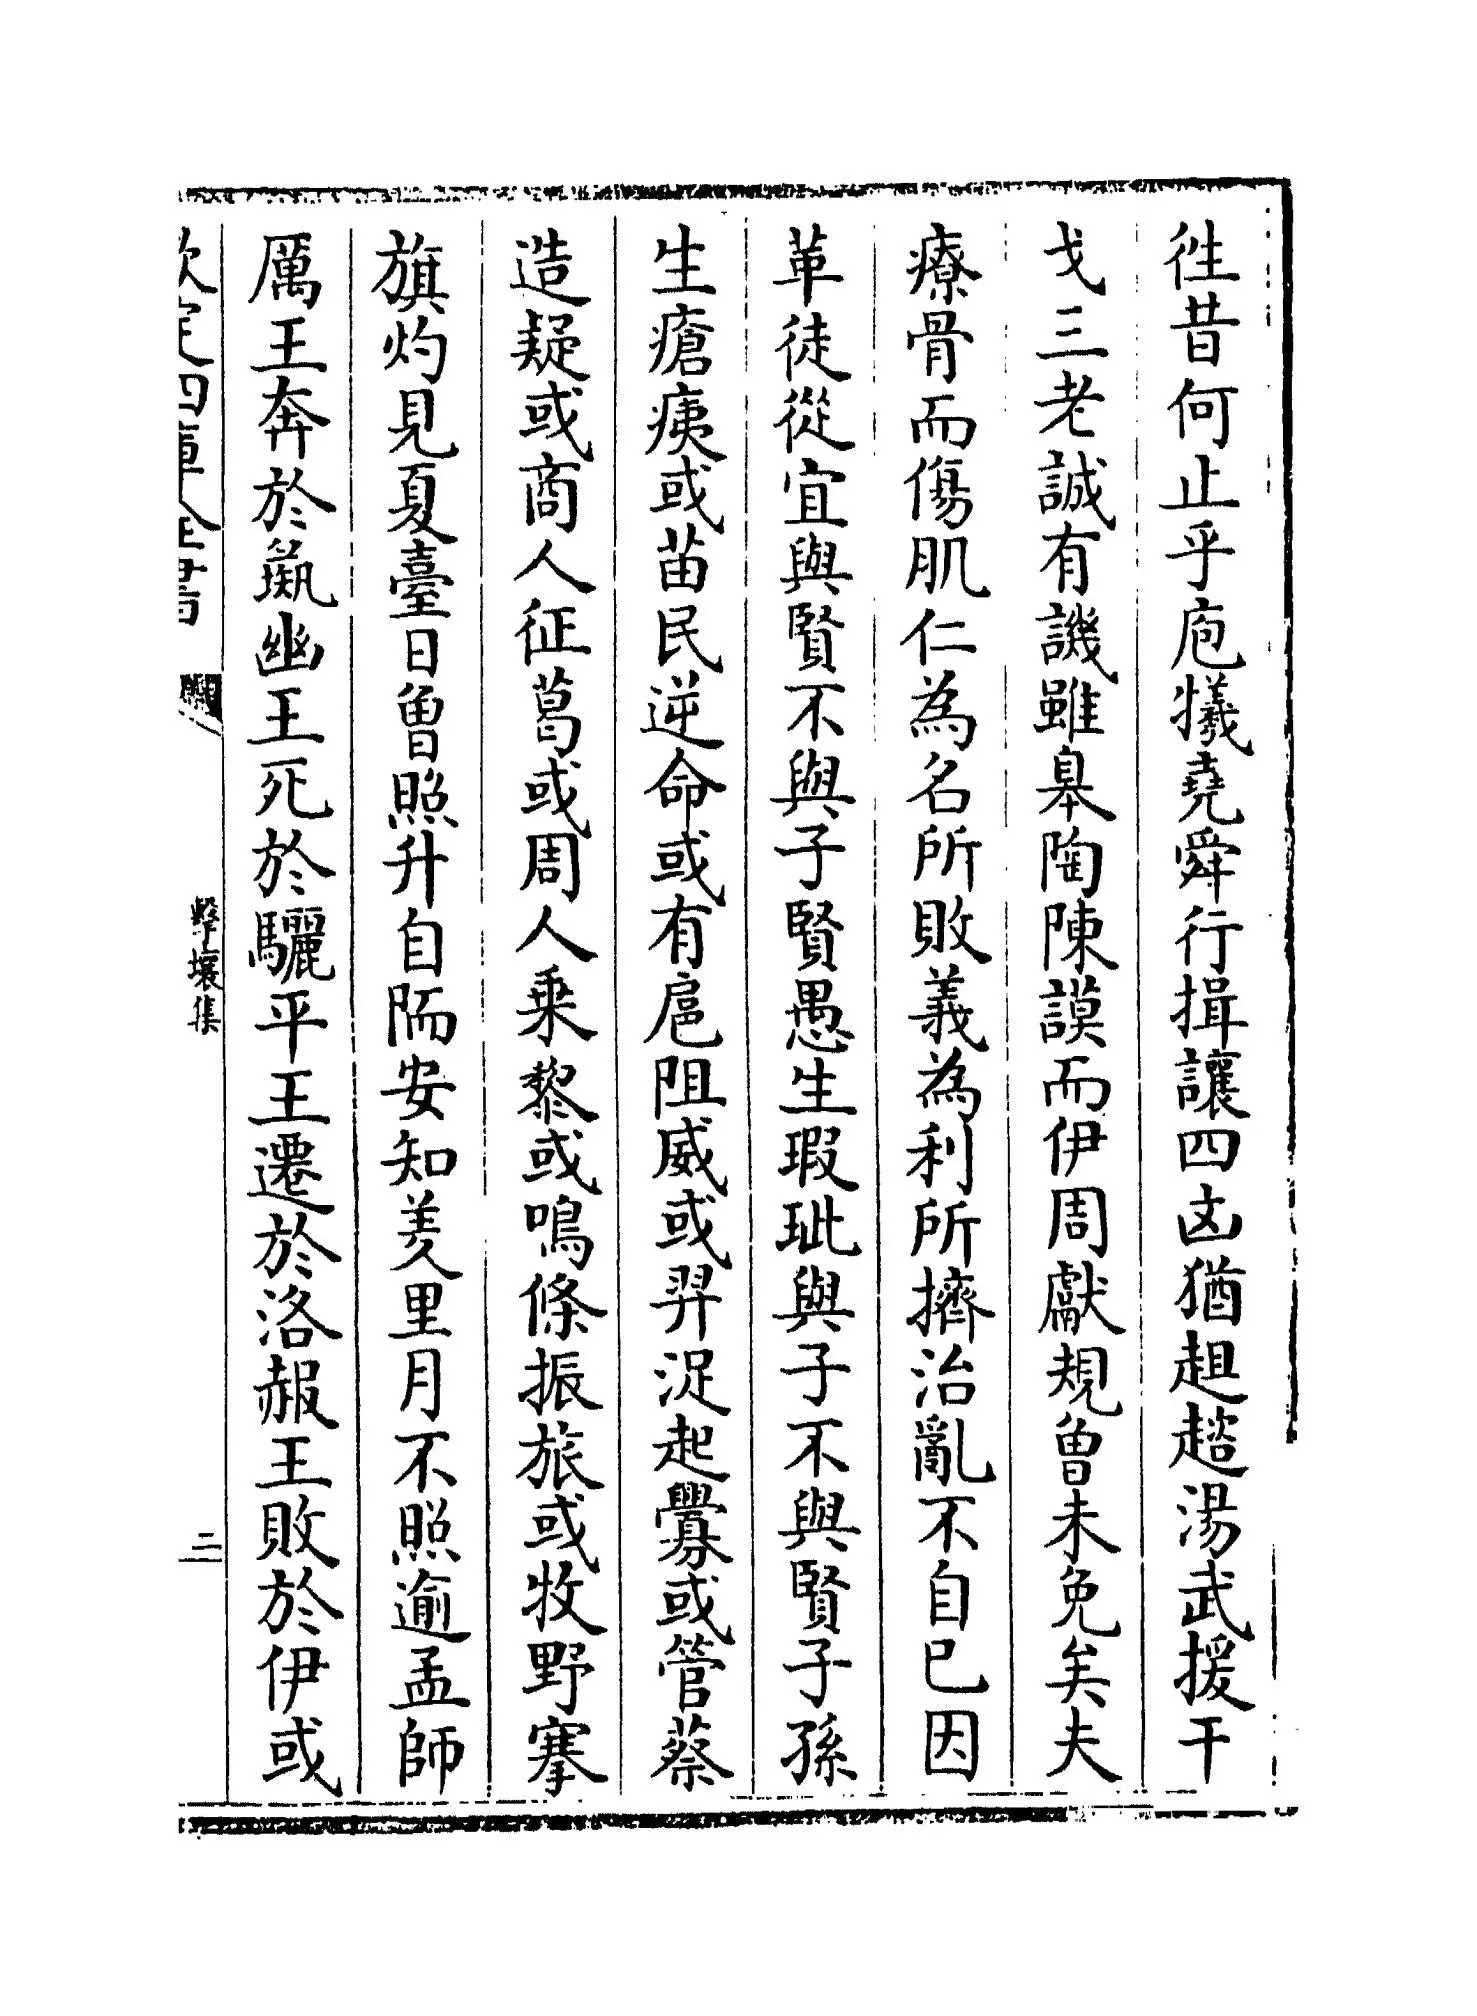 徃昔何止乎庖犧堯舜行揖讓四凶猶趄趦湯武援干
戈三老誠有譏雖皋陶陳謨而伊周獻規曾未免矣夫
療骨而傷肌仁為名所敗義為利所擠治亂不自已因
革徒從宜與賢不與子賢愚生瑕玼與子不與賢子孫
生瘡痍或苗民逆命或有扈阻威或羿浞起釁或管蔡
造疑或商人征葛或周人乗黎或鳴條振旅或牧野搴
旗灼見夏臺日曾照升自陑安知羑里月不照逾孟師
厲王奔於彘幽王死於驪平王遷於洛赧王敗於伊或
欽定四庫全書
擊壤集
二